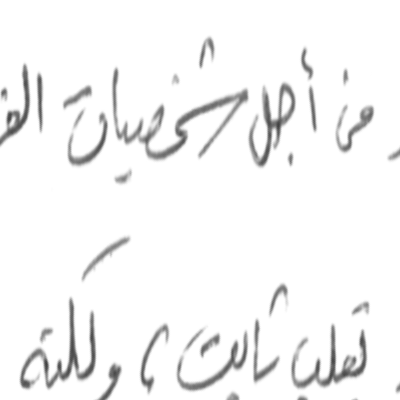 من أجل شخصيات الفر
تعلب ثابت، ولكنه